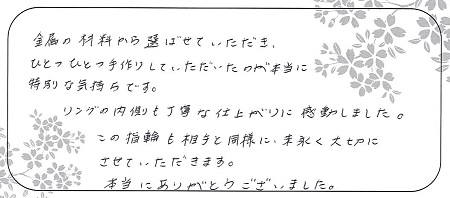 金属の材料から選ばせていただき、
ひとつひとつ手作りしていただいたのが本当に
特別な気持ちです。
リングの内側も丁寧な仕上がりに感動しました。
この指輪も相手と同様に、末永く大切に
させていただきます。
本当にありがとうございました。